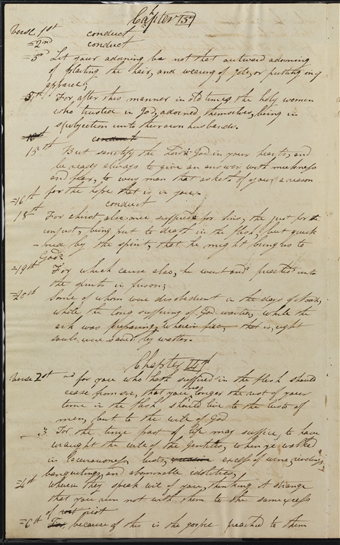 Chapter 3rd
Verse 1st conduct
=2nd conduct
=3 Let your adorning be not that outward adorning
of plaiting the hair, and wearing of gold, or putting on
apparel;
5th For, after this manner in old times the holy women
who trusted in God, adorned themselves, being in
subjection unto their own husbands.
15th But sanctify the Lord God in your hearts, and
be ready always to give an answer with meekness
and fear, to every man that asketh of you a reason
for the hope that is in you.
=16th conduct
18th For christ also once suffered for sins, the just for the
unjust, being put to death in the flesh, but quick
=ned by the spirit, that he might bring us to
God.
=19th For which cause also, he went and preached unto
the spirits in prison;
=20th Some of whom were disobedient in the days of Noah,
while the long suffering of God waited, while the
ark was preparing, wherein few that is, eight
souls were saved by water.
Chapter
Verse 2nd for you who hath suffered in the flesh should
cease from sin, that you no longer the rest of your
time in the flesh should live to the lusts of
men, but to the will of God
3 For the time past of life may suffice, to have
wraught the will of the gentiles, when ye walked
in lasciviousness, lusts, excess of wine, revelings,
banquetings, and abominable idolatries;
=4th Wherein they speak evil of you, thinking it strange
that you run not with them to the same excess
of riot
=6th because of this is the gospel preached to them